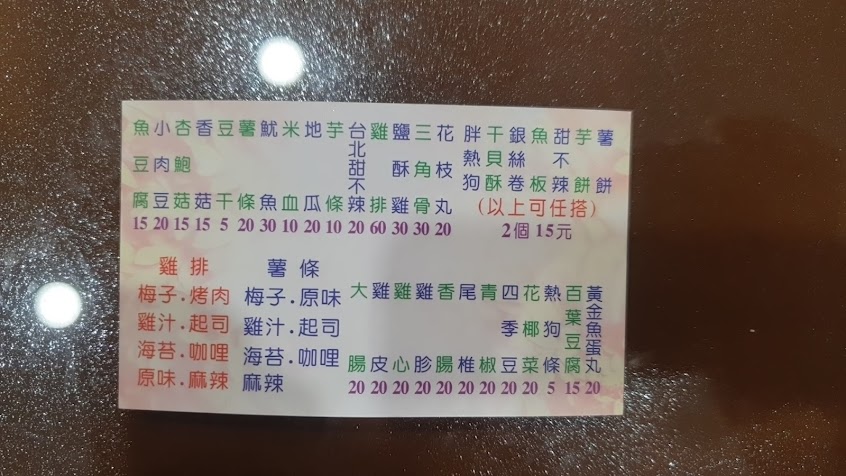 魚豆腐 15
小肉豆 20
杏鮑菇 15
香菇 15
豆干 5
薯條 20
魷魚 30
米血 10
地瓜 20
芋條 10
台北甜不辣 20
雞排 60
鹽酥雞 30
三角骨 30
花枝丸 20
胖熱狗
干貝酥
銀絲卷
魚板
甜不辣
芋餅
薯餅
(以上可任搭)
2個15元
雞排
梅子.烤肉
雞汁.起司
海苔.咖哩
原味.麻辣
薯條
梅子.原味
雞汁.起司
海苔.咖哩
麻辣
大腸 20
雞皮 20
雞心 20
雞胗 20
香腸 20
尾椎 20
青椒 20
四季豆 20
花椰菜 20
熱狗條 5
百葉豆腐 15
黃金魚蛋丸 20